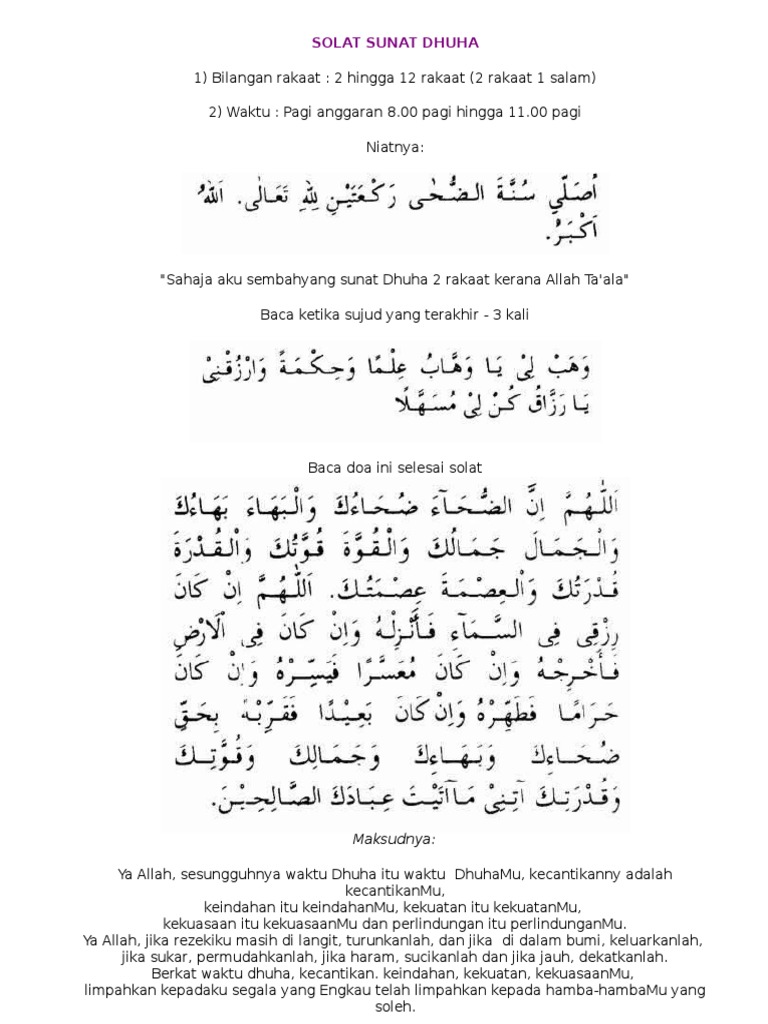 SOLAT SUNAT DHUHA
1) Bilangan rakaat : 2 hingga 12 rakaat (2 rakaat 1 salam)
2) Waktu : Pagi anggaran 8.00 pagi hingga 11.00 pagi
Niatnya:
اُصَلِّي سُنَّةَ الضُّحٰى رَكْعَتَيْنِ لِلّٰهِ تَعَالٰى. اَللهُ
اَكْبَرُ.
"Sahaja aku sembahyang sunat Dhuha 2 rakaat kerana Allah Ta'ala"
Baca ketika sujud yang terakhir - 3 kali
وَهَبْ لِىْ يَا وَهَّابُ عِلْمًا وَحِكْمَةً وَارْزُقْنِىْ
يَا رَزَّاقُ كُنْ لِىْ مُسَهِّلًا
Baca doa ini selesai solat
اَللّٰهُمَّ اِنَّ الضُّحَآءَ ضُحَاءُكَ وَالْبَهَاءَ بَهَاءُكَ
وَالْجَمَالَ جَمَالُكَ وَالْقُوَّةَ قُوَّتُكَ وَالْقُدْرَةَ
قُدْرَتُكَ وَالْعِصْمَةَ عِصْمَتُكَ. اَللّٰهُمَّ اِنْ كَانَ
رِزْقِى فِى السَّمَآءِ فَأَنْزِلْهُ وَاِنْ كَانَ فِى الْاَرْضِ
فَأَخْرِجْهُ وَاِنْ كَانَ مُعَسَّرًا فَيَسِّرْهُ وَاِنْ كَانَ
حَرَامًا فَطَهِّرْهُ وَاِنْ كَانَ بَعِيْدًا فَقَرِّبْهُ بِحَقِّ
ضُحَاءِكَ وَبَهَاءِكَ وَجَمَالِكَ وَقُوَّتِكَ
وَقُدْرَتِكَ آتِنِىْ مَآ اٰتَيْتَ عِبَادَكَ الصَّالِحِيْنَ.
Maksudnya:
Ya Allah, sesungguhnya waktu Dhuha itu waktu  DhuhaMu, kecantikanny adalah
kecantikanMu,
keindahan itu keindahanMu, kekuatan itu kekuatanMu,
kekuasaan itu kekuasaanMu dan perlindungan itu perlindunganMu.
Ya Allah, jika rezekiku masih di langit, turunkanlah, dan jika  di dalam bumi, keluarkanlah,
jika sukar, permudahkanlah, jika haram, sucikanlah dan jika jauh, dekatkanlah.
Berkat waktu dhuha, kecantikan. keindahan, kekuatan, kekuasaanMu,
limpahkan kepadaku segala yang Engkau telah limpahkan kepada hamba-hambaMu yang
soleh.